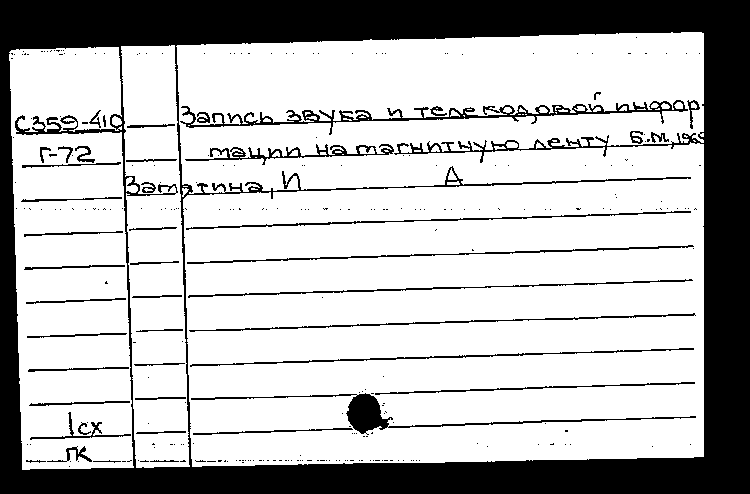 С359-410 Запись звука и телекодовой инфор-
Г-72 мации на магнитную ленту Б.М., 1969
Замятина, И А
1сх
ГК